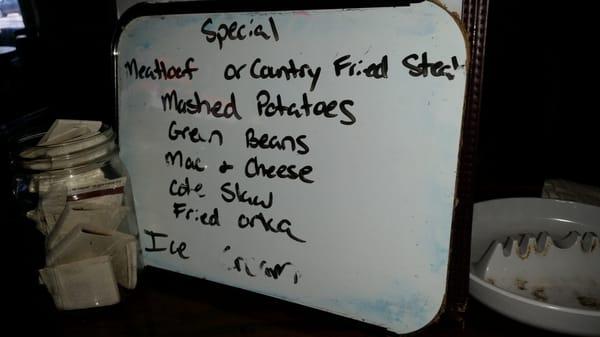 Special
Meatloaf or Country Fried Steak
Mashed Potatoes
Green Beans
Mac & Cheese
Cole Slaw
Fried orka
Ice Cream